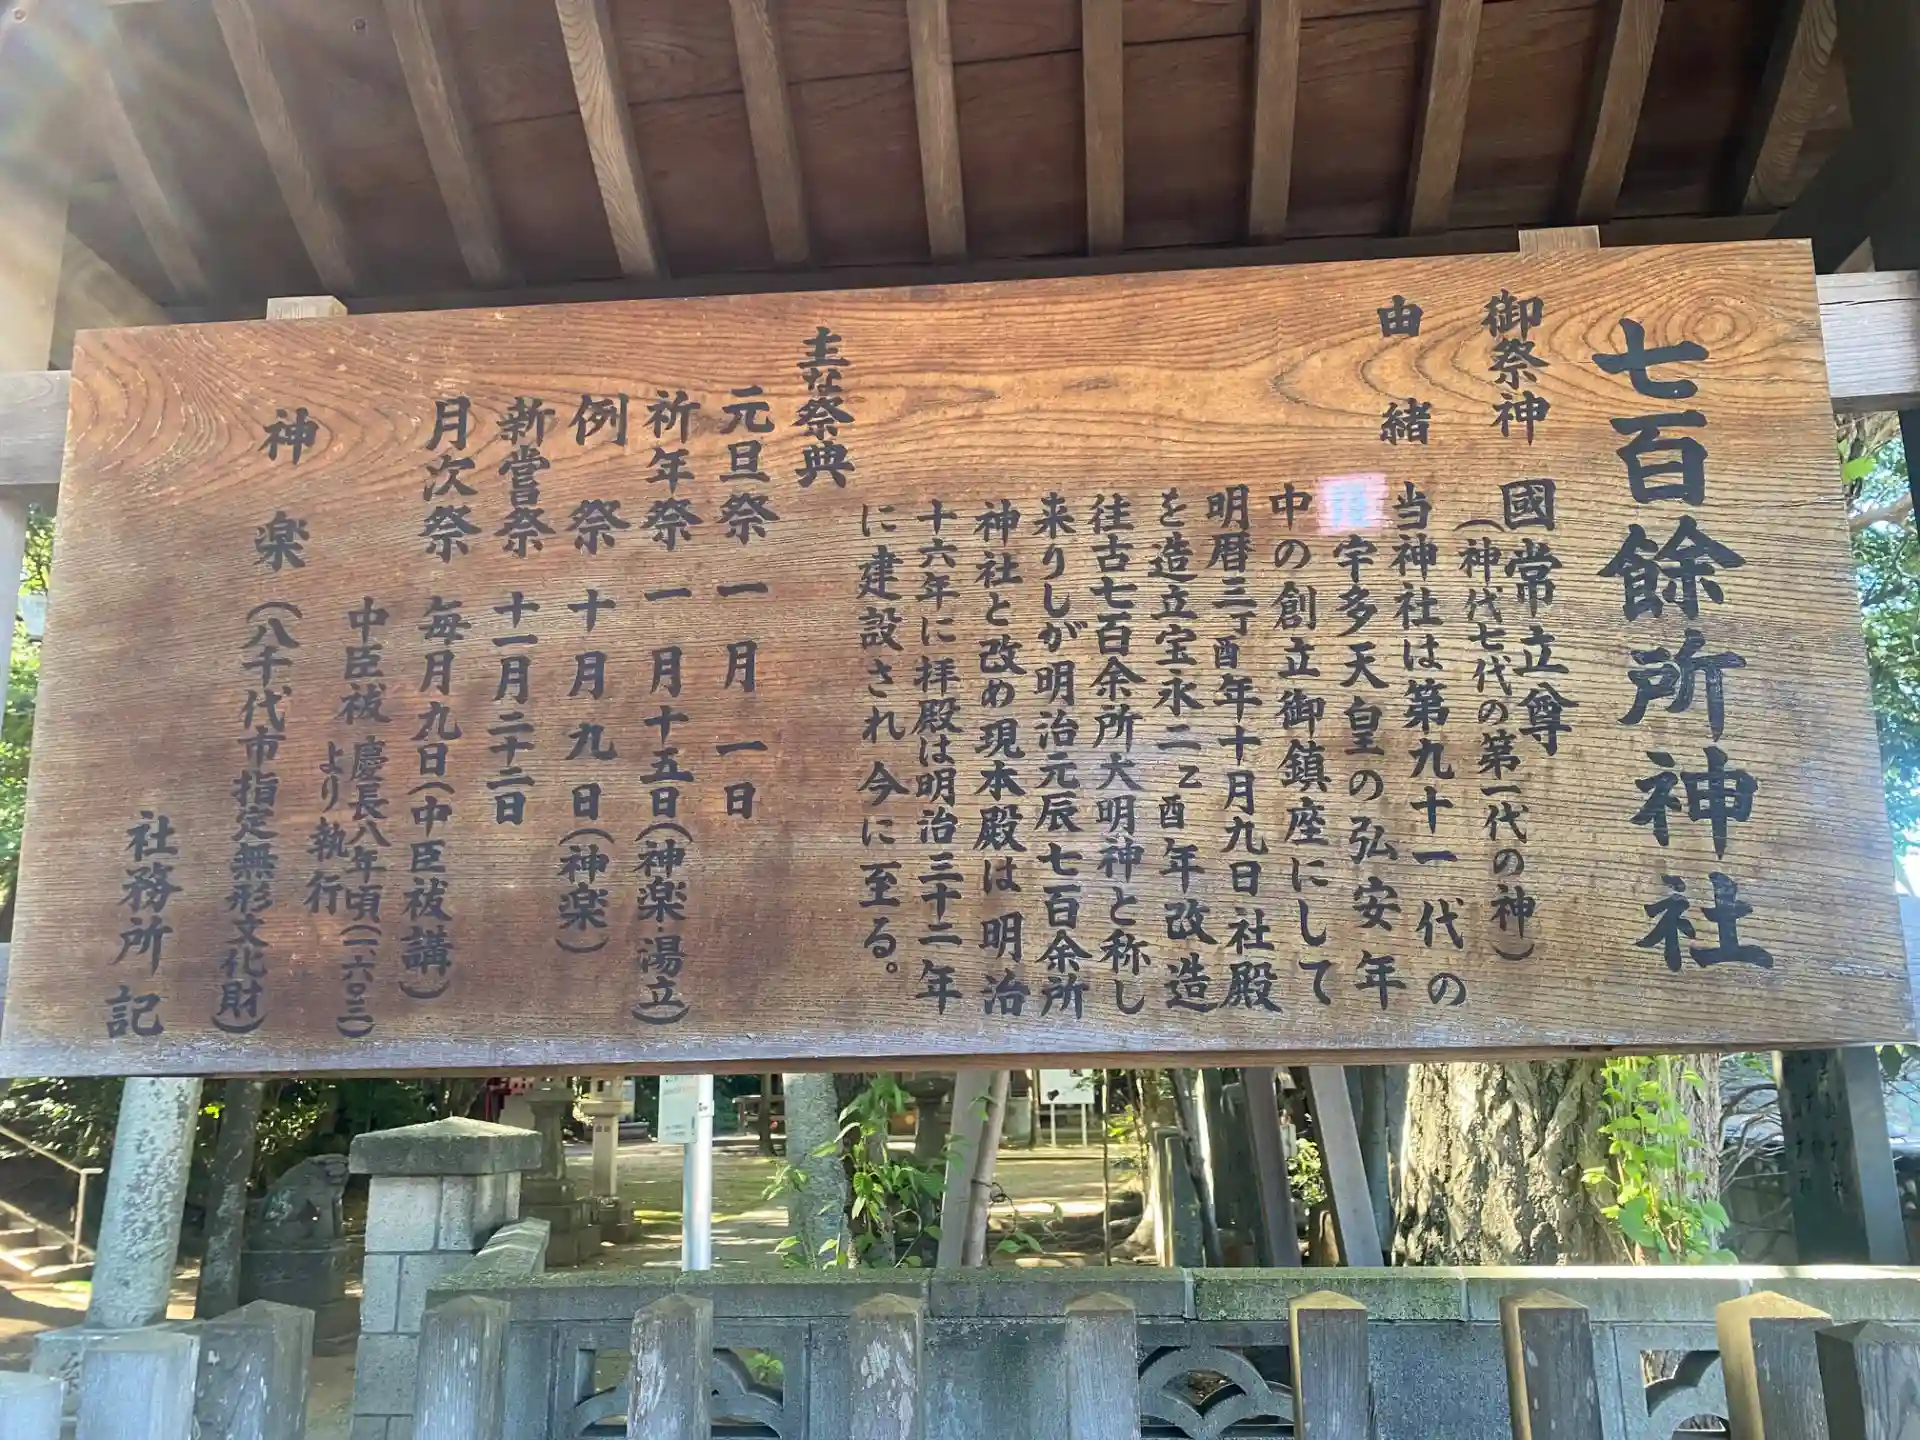 七百餘所神社
御祭神 國常立尊
(神代七代の第一代の神)
由緒 当神社は第九十一代の
宇多天皇の弘安年
中の創立御鎮座にして
明暦三丁酉年十月九日社殿
を造立宝永二乙酉年改造
往古七百余所大明神と称し
来りしが明治元辰七百余所
神社と改め現本殿は明治
十六年に拝殿は明治三十二年
に建設され今に至る。
主な祭典
元旦祭 一月一日
祈年祭 一月十五日(神楽・湯立)
例祭 十月九日(神楽)
新嘗祭 十一月二十二日
月次祭 毎月九日(中臣祓講)
中臣祓 慶長八年頃(一六〇三)
より執行
神楽 (八千代市指定無形文化財)
社務所 記